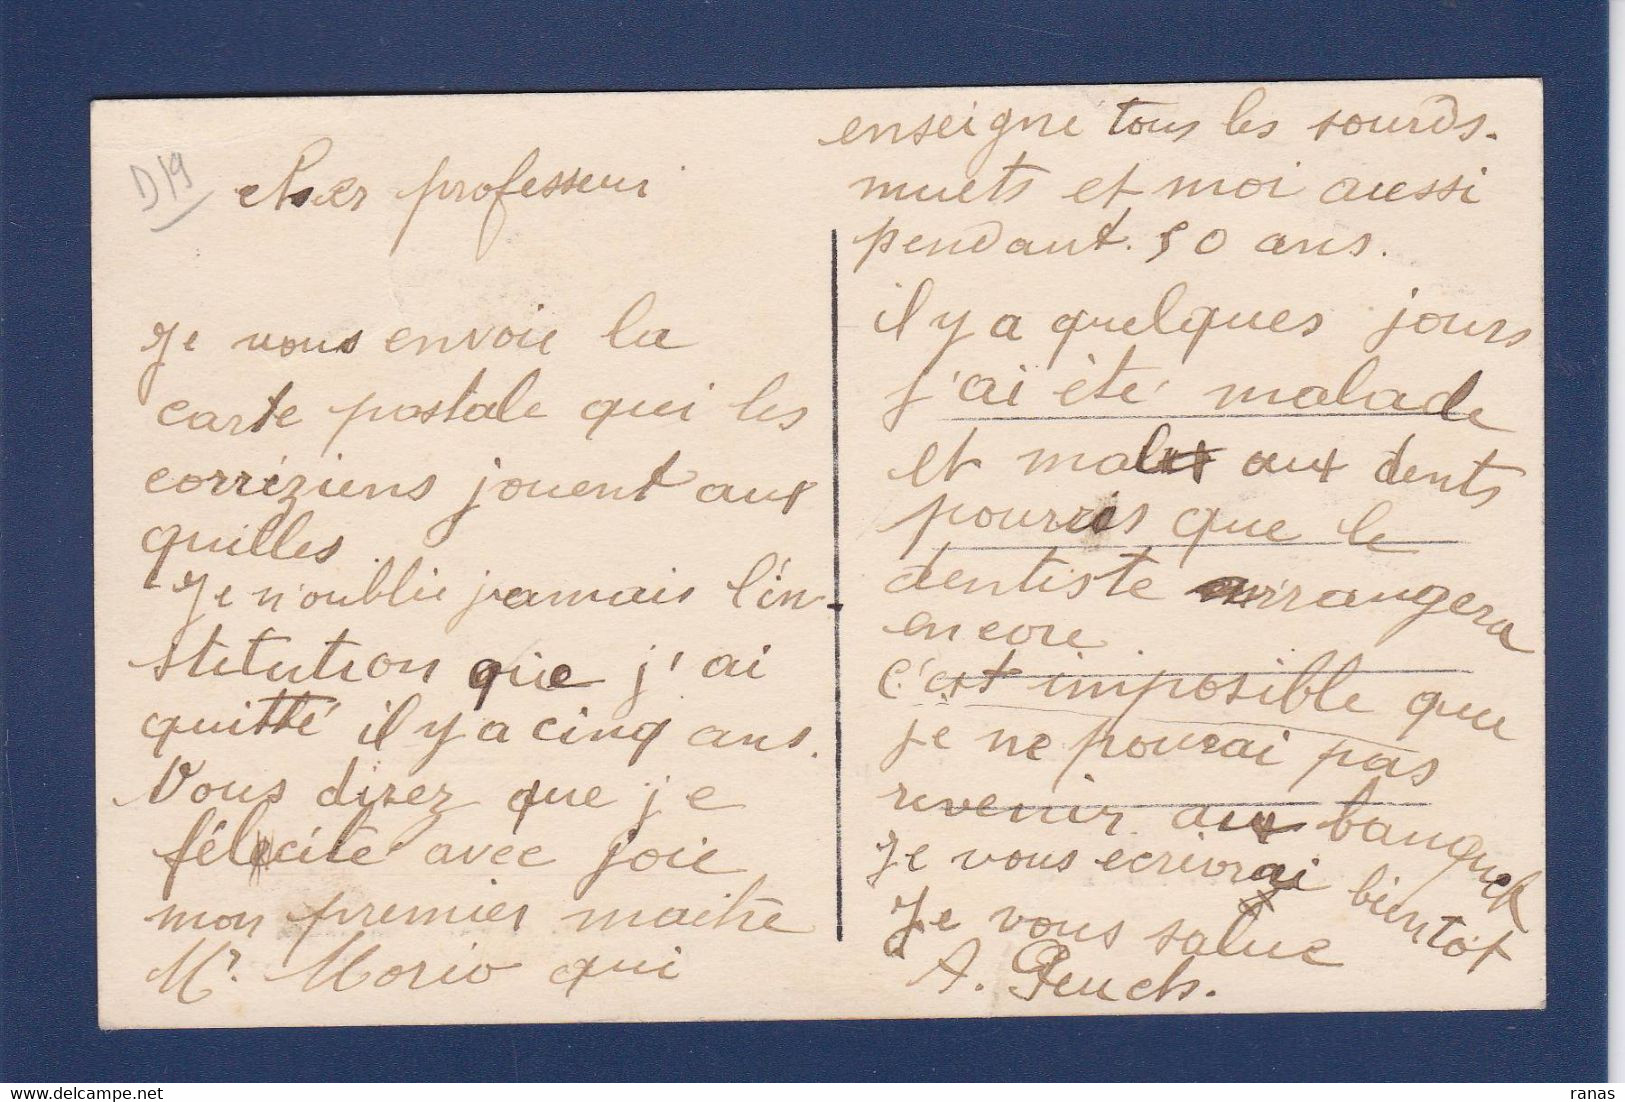 D19
cher professeur
Je vous envoie la
carte postale qui les
corréziens jouent aux
quilles
Je n'oublie jamais l'in-
stitution que j'ai
quitté il y a cinq ans.
Vous direz que je
félicite avec joie
mon premier maitre
Mr. Morio qui
enseigne tous les sourds-
muets et moi aussi
pendant 50 ans.
il y a quelques jours
j'ai été malade
et mal aux dents
pourris que le
dentiste arrangera
encore
c'est imposible que
je ne pourai pas
revenir au banquet
Je vous écrivrai bientot
Je vous salue
A. Peuch.
ranas